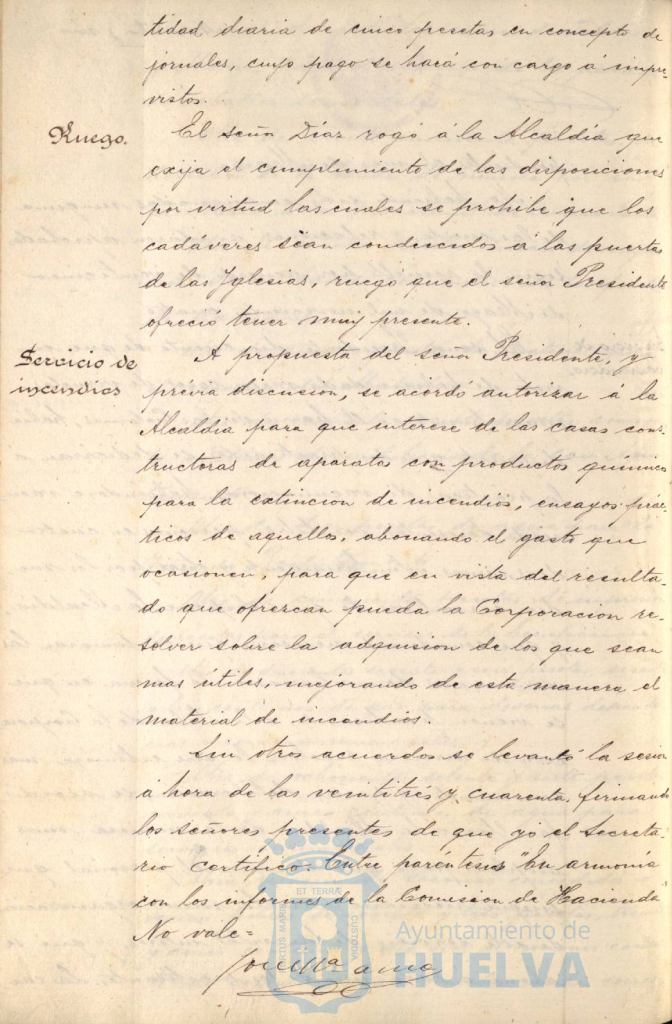 tidad diaria de cinco pesetas en concepto de
jornales, cuyo pago se hará con cargo á impre-
vistos.
Ruego.
El señor Díaz rogó á la Alcaldía que
exija el cumplimiento de las disposiciones
por virtud las cuales se prohibe que los
cadáveres sean conducidos á las puertas
de las Iglesias, ruego que el señor Presidente
ofreció tener muy presente.
Servicio de
incendios
A propuesta del señor Presidente, y
previa discusion, se acordó autorizar á la
Alcaldia para que interese de las casas cons-
tructoras de aparatos con productos químicos
para la extincion de incendios, ensayos prác-
ticos de aquellos, abonando el gasto que
ocasionen, para que en vista del resulta-
do que ofrezcan pueda la Corporacion re-
solver sobre la adquision de los que sean
mas útiles, mejorando de esta manera el
material de incendios.
Sin otros acuerdos se levantó la sesion
á hora de las veintitrés y cuarenta, firmando
los señores presentes de que yo el Secreta-
rio certifico. Entre paréntesis "En armonía
con los informes de la Comision de Hacienda"
No vale=
PORTUS MARIS ET TERRÆ CUSTODIA
Ayuntamiento de
HUELVA